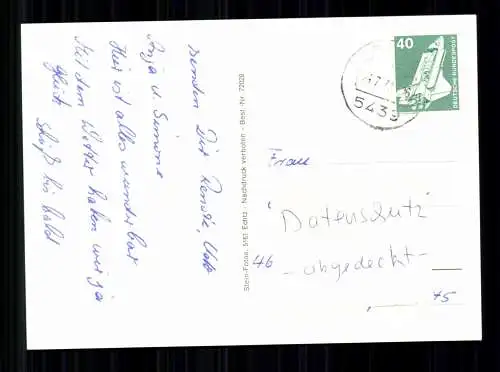 senden Dir Renate, Udo
Anja u. Simone
Hier ist alles wunderbar
Mit dem Wetter haben wir ja
Glück
Tschüß bis bald
Stein-Fotos, 5161 Echtz - Nachdruck verboten - Best.-Nr. 72029
40
DEUTSCHE BUNDESPOST
543
Frau
Datenschutz
46 - abgedeckt -
75